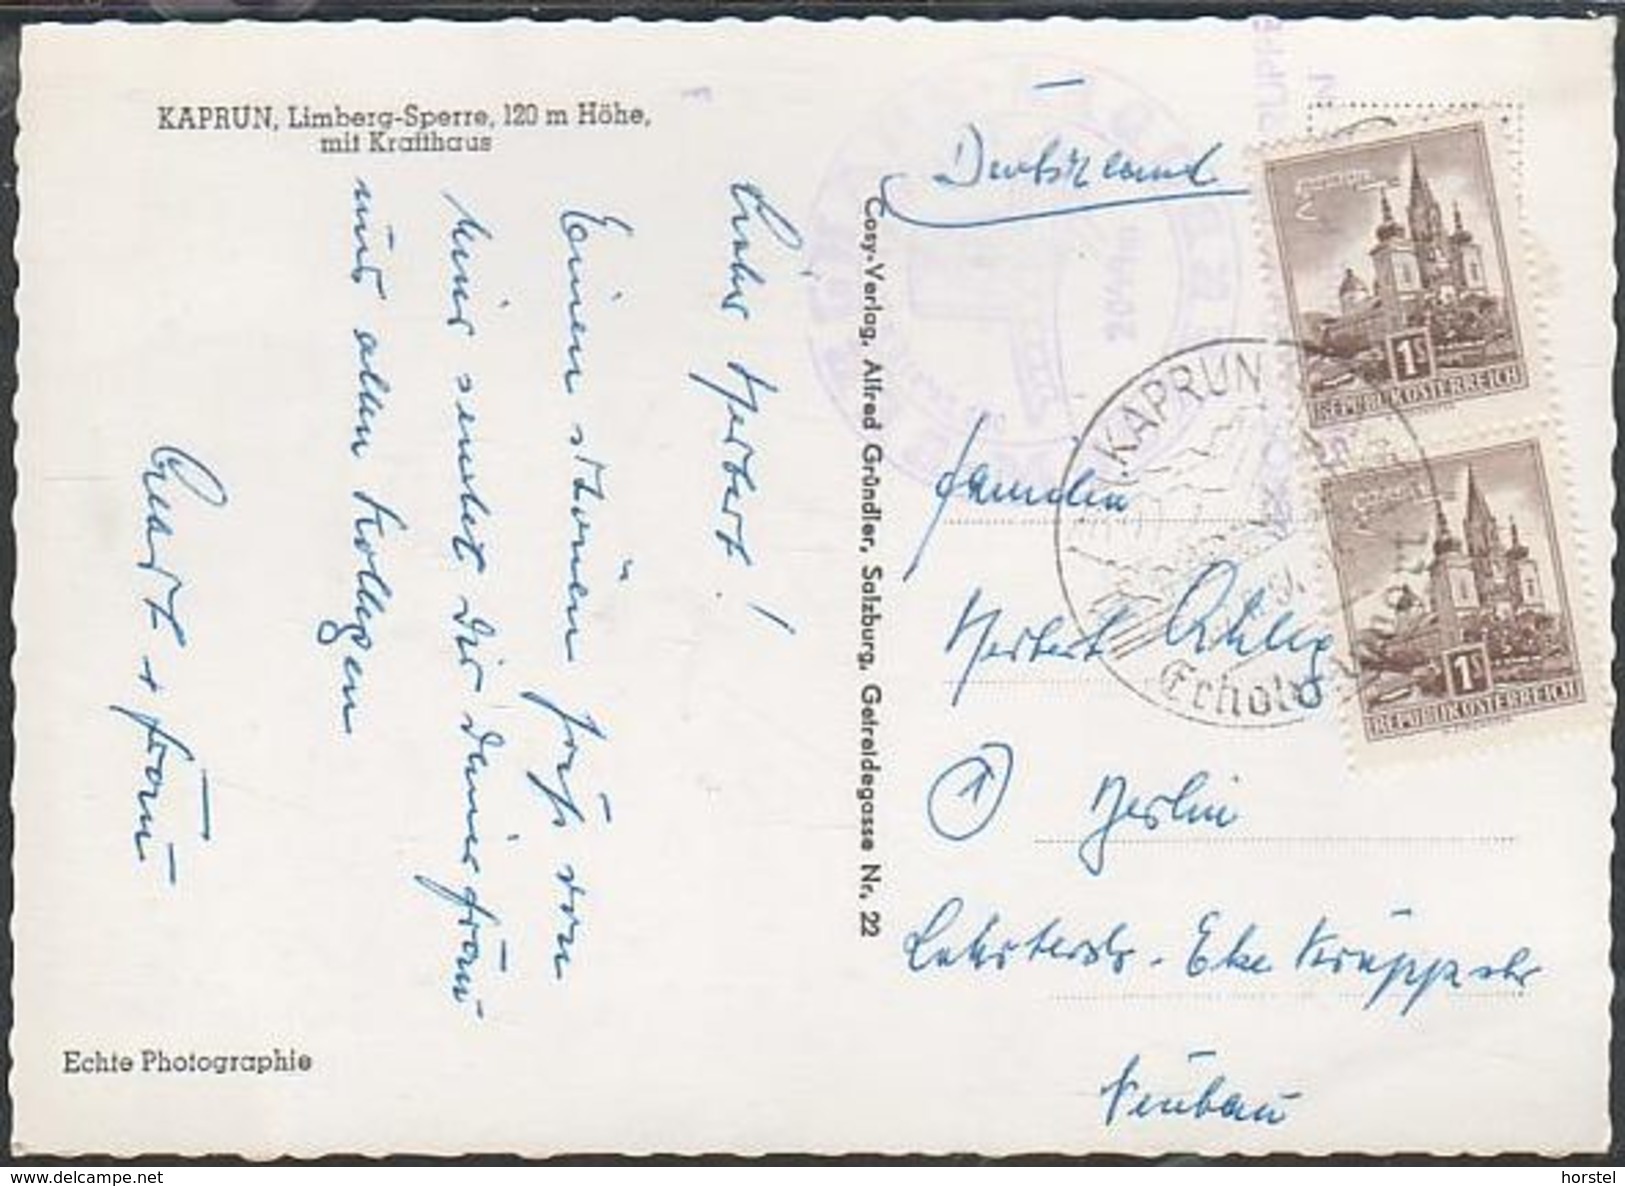 KAPRUN, Limberg-Sperre, 120 m Höhe,
mit Krafthaus
Lieber Herbert!
Einen schönen Gruß von
hier sendet Dir Deiner Frau
und allen Kollegen
Curt + Frau
Echte Photographie
Cosy-Verlag, Alfred Gründler, Salzburg, Getreidegasse Nr. 22
Deutschland
2044m
KAPRUN
1S
REPUBLIK ÖSTERREICH
1S
REPUBLIK ÖSTERREICH
Familie
Herbert
1 Berlin
Lehrterstr. Ecke Kruppstr
Neubau
delcampe.net
horstel